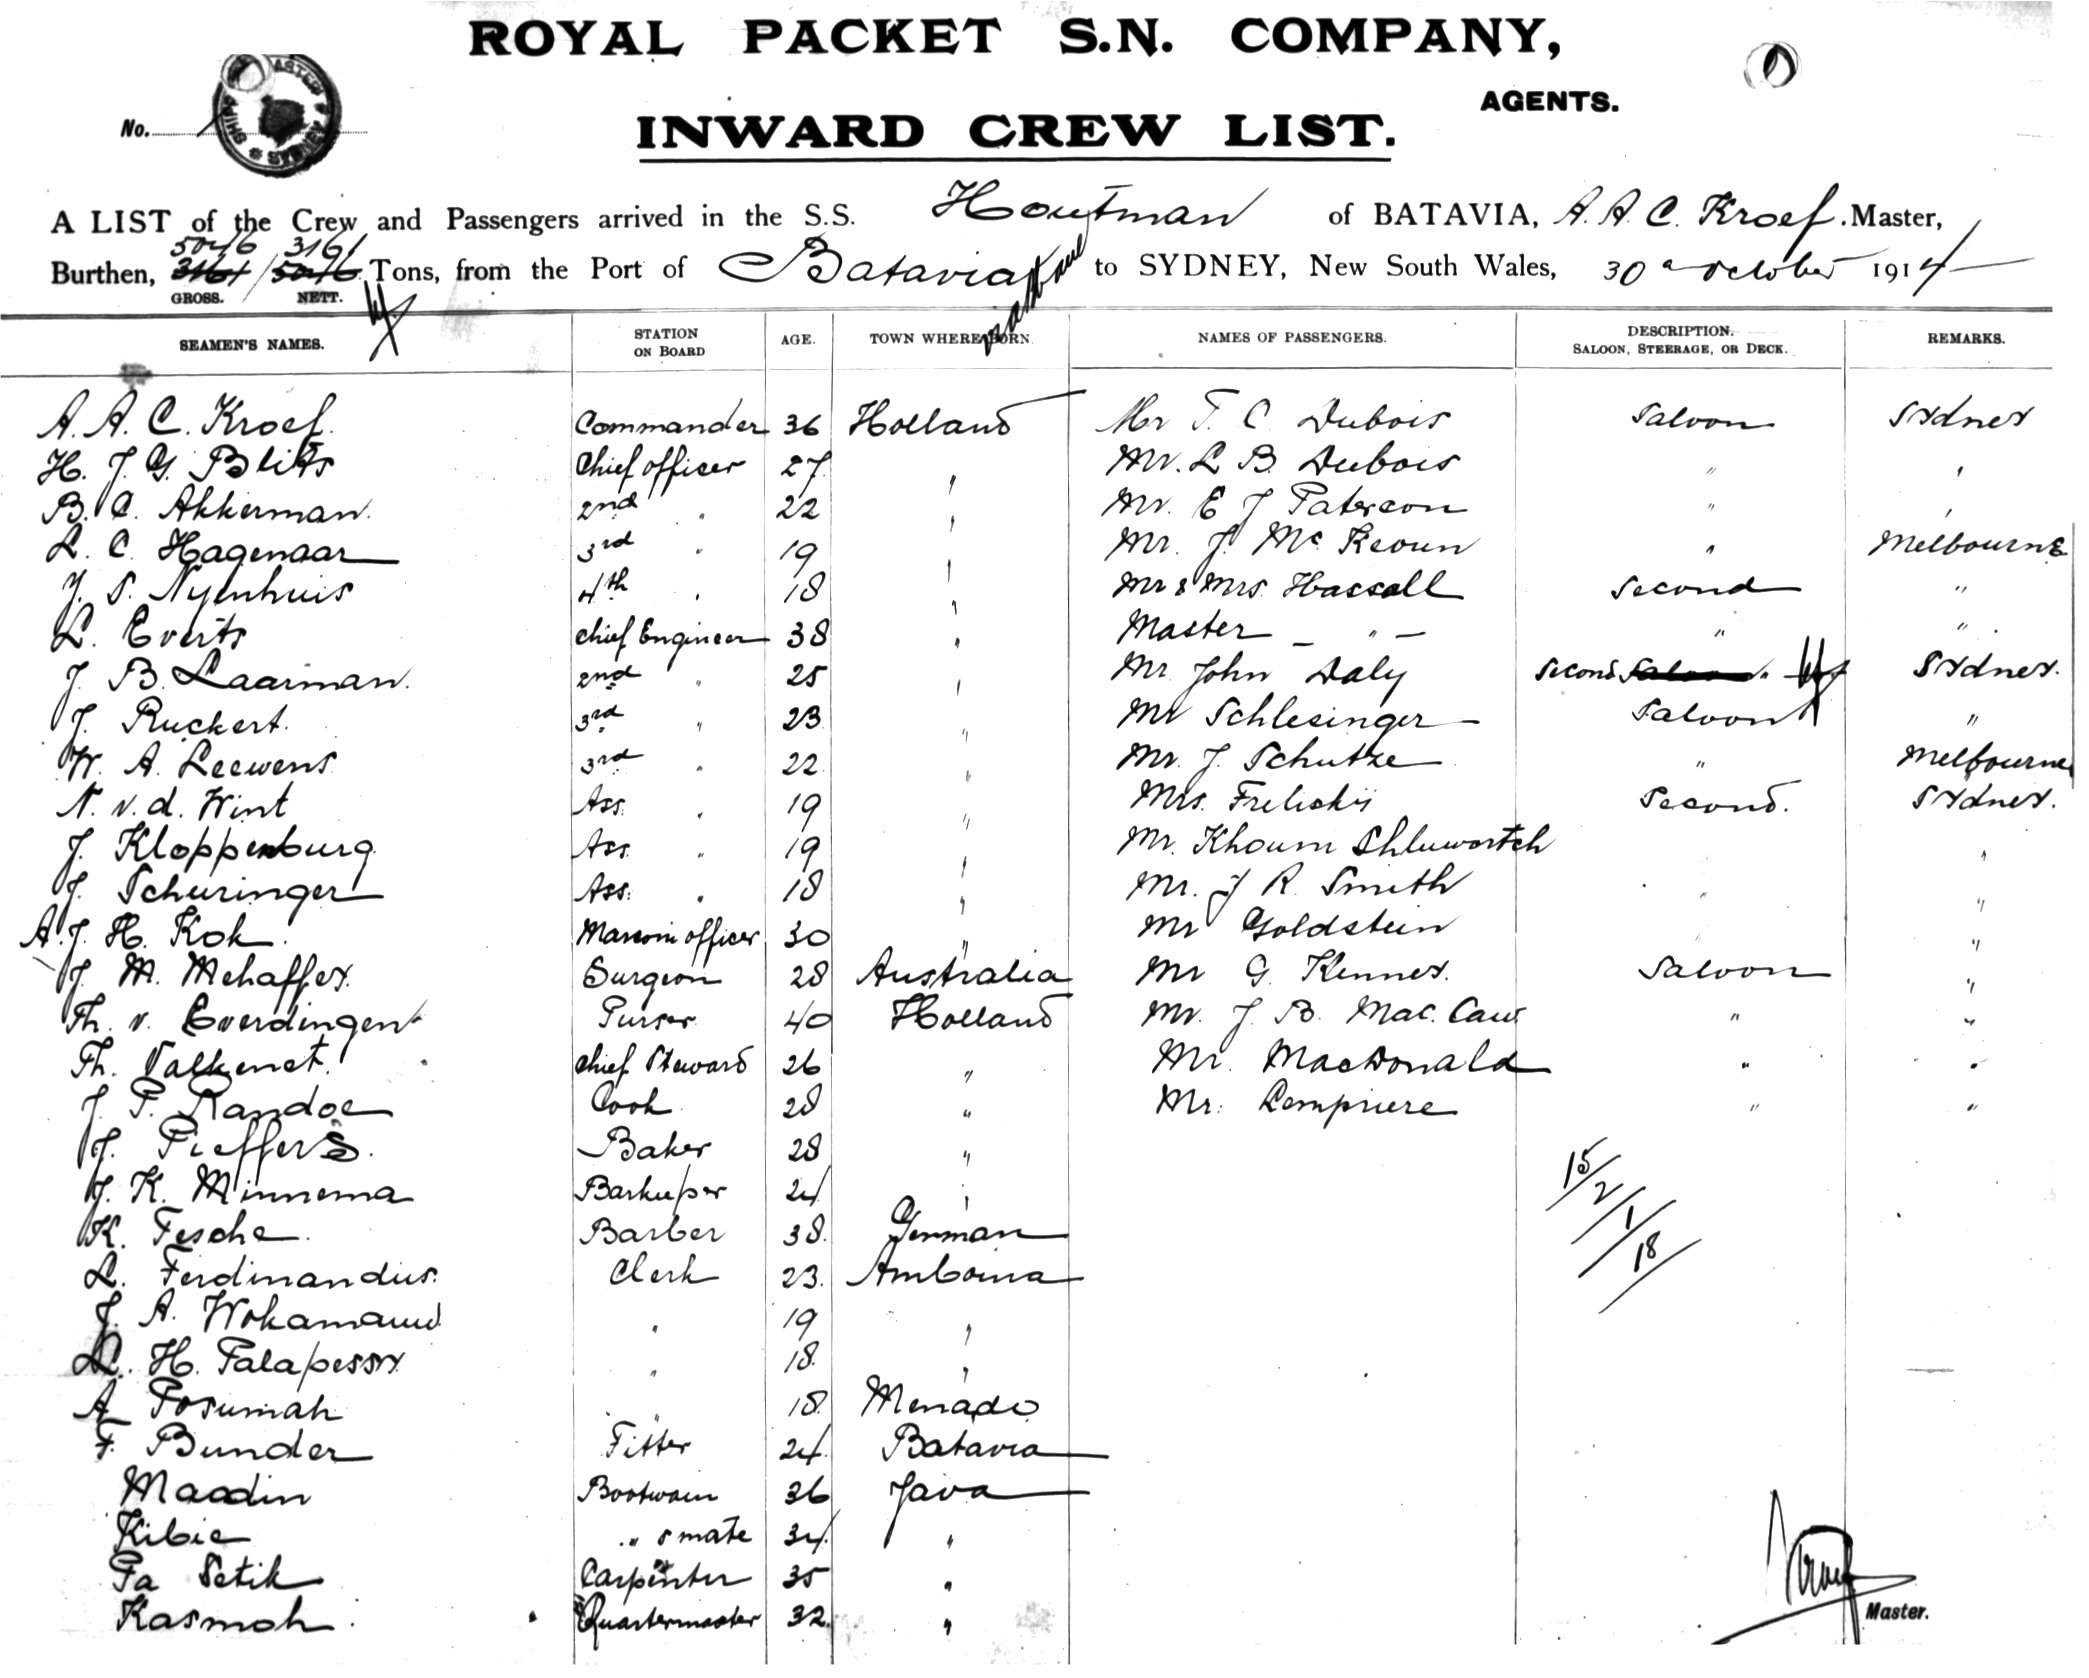 ROYAL PACKET S.N. COMPANY,
AGENTS.
No.
INWARD CREW LIST.
A LIST of the Crew and Passengers arrived in the S.S. Houtman of BATAVIA, A. A. C. Kroef. Master,
5076 3161
Burthen, 3161 / 5076 Tons, from the Port of Batavia to SYDNEY, New South Wales, 30 October 1914
GROSS. NETT.
SEAMEN'S NAMES. STATION ON BOARD AGE. TOWN WHERE BORN. NAMES OF PASSENGERS. DESCRIPTION. SALOON, STEERAGE, OR DECK. REMARKS.
A. A. C. Kroef. Commander 36 Holland Mr T. C. Dubois Saloon Sydney
H. J. G. Blits Chief officer 27 " Mr. L B. Dubois " "
B. C. Akkerman. 2nd " 22 " Mr. E J Paterson " "
L. C. Hagenaar 3rd " 19 " Mr. J. Mc Keoun " Melbourne
J. S. Nyenhuis 4th " 18 " Mr & Mrs. Hassall Second "
L. Everts chief Engineer 38 " Master — " — " "
J. B. Laarman. 2nd " 25 " Mr John Daly Second Saloon Sydney.
J. Ruckert. 3rd " 23 " Mr Schlesinger — Saloon "
W. A. Leewens 3rd " 22 " Mr. J. Schutze " Melbourne
N. v. d. Wint Ass. " 19 " Mrs. Second. Sydney.
J. Kloppenburg Ass. " 19 " Mr. Khoum "
J. Schuringer Ass. " 18 " Mr. J R. Smith " "
A. J. H. Kok. Marconi officer 30 " Mr Goldstein "
J. M. Mehaffey. Surgeon 28 Australia Mr G. Kenney. Saloon "
Th. v. Everdingen Purser 40 Holland Mr. J. B. Mac. Caw " "
Th. Valkenet. chief Steward 26 " Mr. MacDonald " "
J. P. Randoe Cook 28 " Mr. Lempriere " "
J. Pieffers. Baker 28 "
J. K. Minnema Barkeeper 24 "
K. Fesche. Barber 38 German
L. Ferdinandus. Clerk 23. Amboina
J. A. " 19 "
L. H. Palapessy " 18. "
A Posumah " 18. Menado
F. Bunder Fitter 24. Batavia
Maodin Bootwain 36 Java
Kibie " s mate 34. "
Pa Setik Carpenter 35 "
Kasmoh. Quartermaster 32. "
15/2/1/18
Kroef
Master.